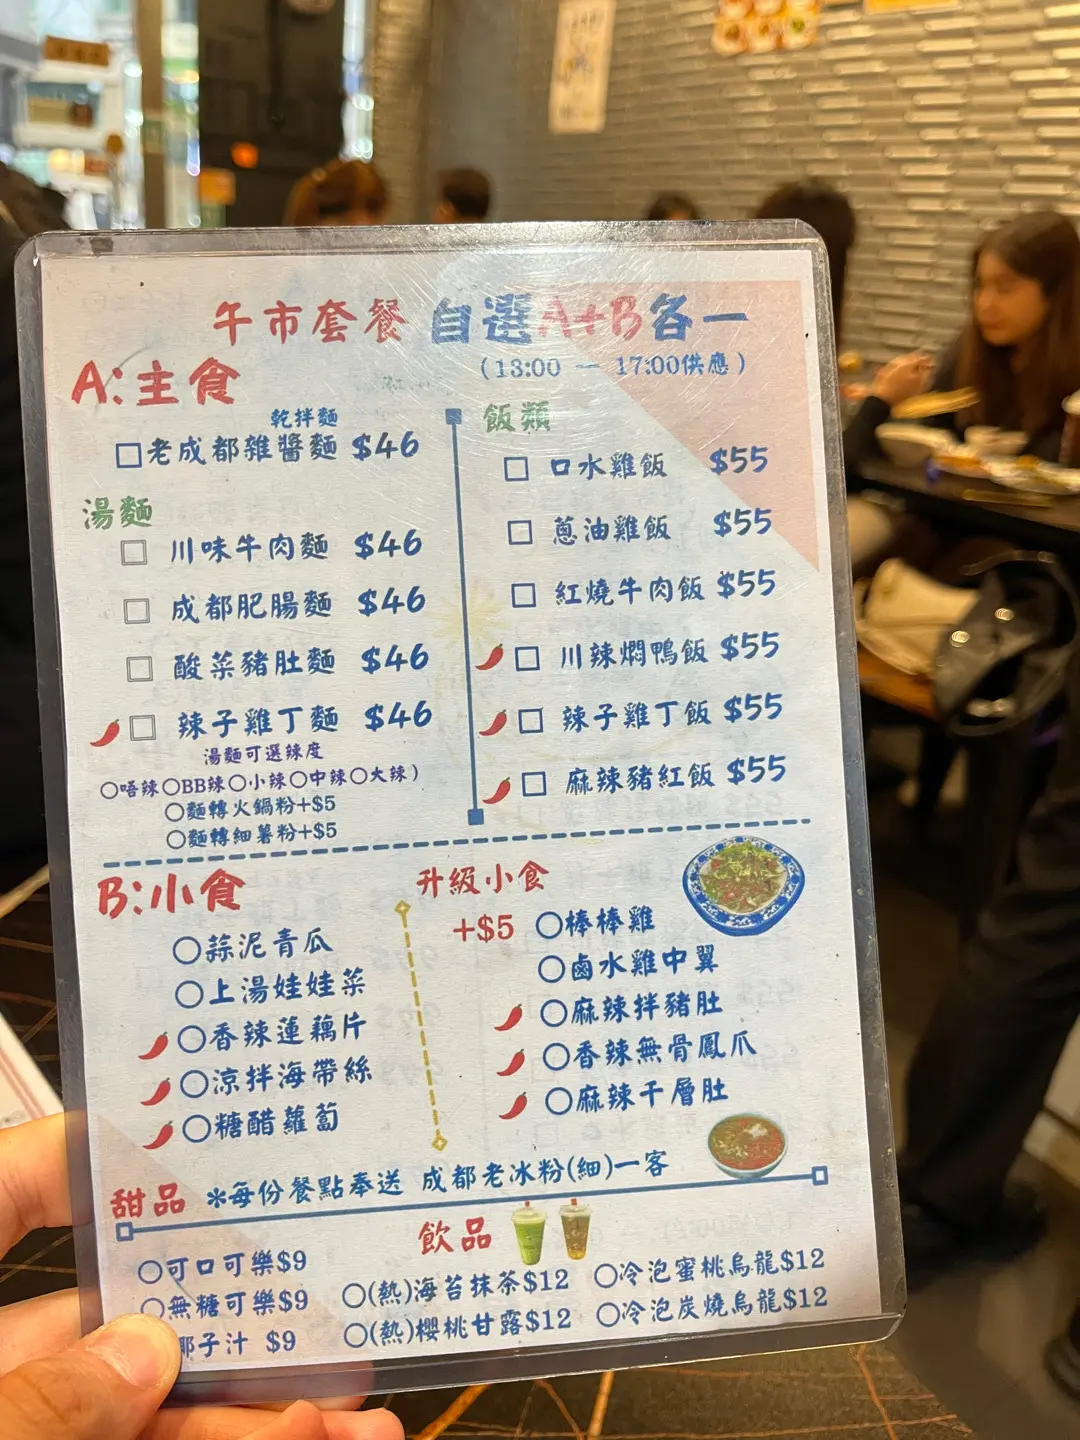 午市套餐 自選A+B各一
(13:00 — 17:00供應)
A:主食
乾拌麵
老成都雜醬麵 $46
湯麵
川味牛肉麵 $46
成都肥腸麵 $46
酸菜豬肚麵 $46
辣子雞丁麵 $46
湯麵可選辣度
○唔辣○BB辣○小辣○中辣○大辣)
○麵轉火鍋粉+$5
○麵轉細薯粉+$5
飯類
口水雞飯 $55
蔥油雞飯 $55
紅燒牛肉飯 $55
川辣燜鴨飯 $55
辣子雞丁飯 $55
麻辣豬紅飯 $55
B:小食
○蒜泥青瓜
○上湯娃娃菜
○香辣蓮藕片
○涼拌海帶絲
○糖醋蘿蔔
升級小食
+$5 ○棒棒雞
○鹵水雞中翼
○麻辣拌豬肚
○香辣無骨鳳爪
○麻辣千層肚
甜品 *每份餐點奉送 成都老冰粉(細)一客
飲品
○可口可樂$9
○無糖可樂$9
椰子汁 $9
○(熱)海苔抹茶$12
○(熱)櫻桃甘露$12
○冷泡蜜桃烏龍$12
○冷泡炭燒烏龍$12